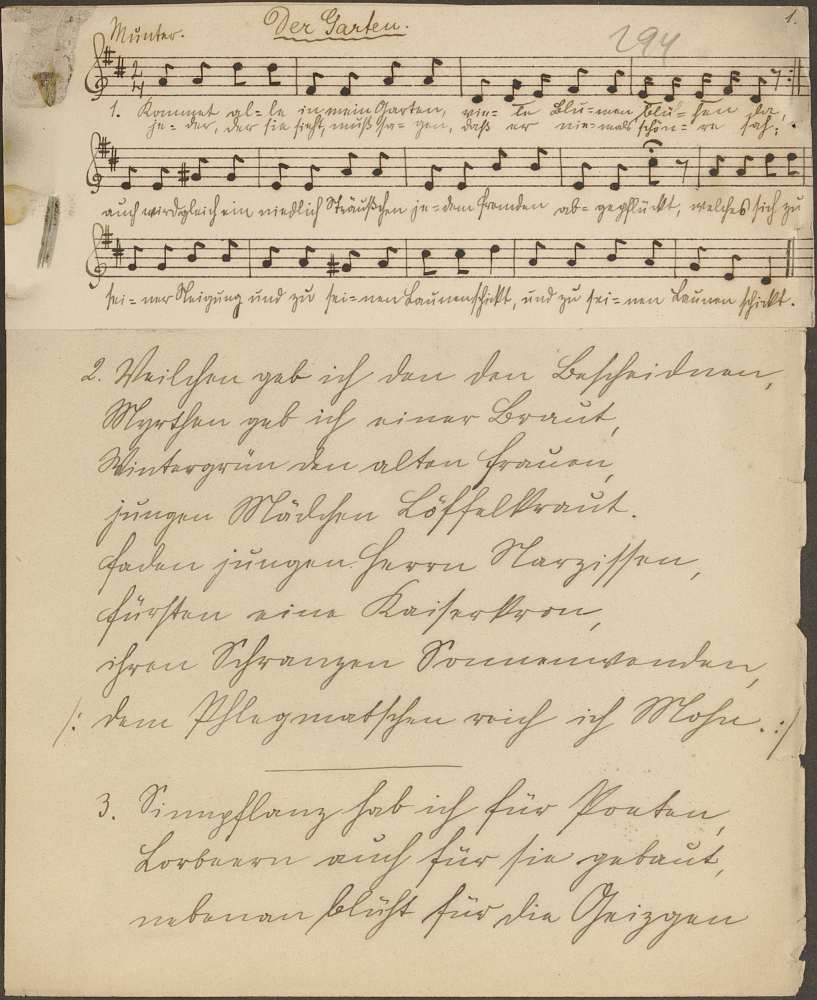 1.
Der Garten.
Munter.
294
1. Kommet al=le in mein Garten, vie=le Blu=men blü=hen da,
je=der, der sie sieht, muß sa=gen, daß er nie=mals schön=re sah;
auch wird gleich ein niedlich Sträußchen je=dem Fremden ab=gepflückt, welches sich zu
sei=ner Neigung und zu sei=nen Launen schickt, und zu sei=nen Launen schickt.
2. Veilchen geb ich den den Bescheidnen,
Myrthen geb ich einer Braut,
Wintergrün den alten Frauen,
jungen Mädchen Löffelkraut.
Faden jungen Herrn Narzissen,
Fürsten eine Kaiserkron,
ihren Schranzen Sonnenwenden,
/: dem Phlegmatschen reich ich Mohn. :/
3. Sinnpflanz hab ich für Poeten,
Lorbeern auch für sie gebaut,
nebenan blüht für die Geizgen